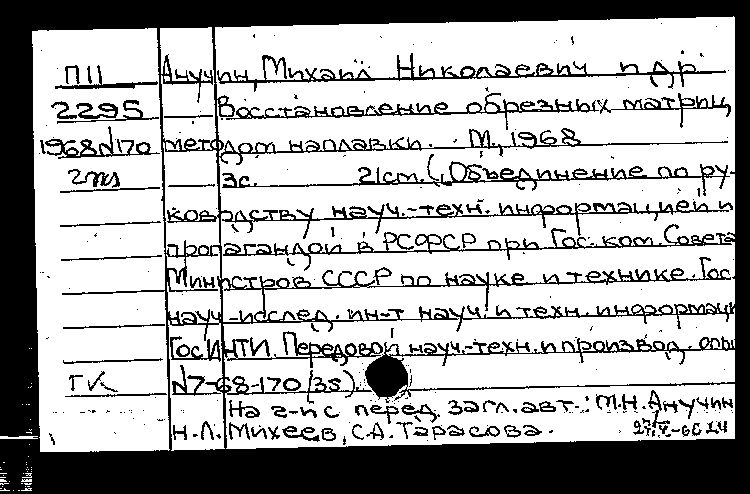 П11 Анучин, Михаил Николаевич и др
2295 Восстановление обрезных матриц
1968 N170 методом наплавки. М., 1968
2 3с. 21см. (Объединение по ру-
ководству науч.-техн. информацией и
пропагандой в РСФСР при Гос. ком. Совета
Министров СССР по науке и технике. Гос.
науч-исслед. ин-т науч. и техн. информаци
ГосИНТИ. Передовой науч.-техн. и производ. опы
ГК N7-68-170/35).
На 2-й с перед. загл. авт.: М.Н. Анучин
Н.Л. Михеев, С.А. Тарасова.